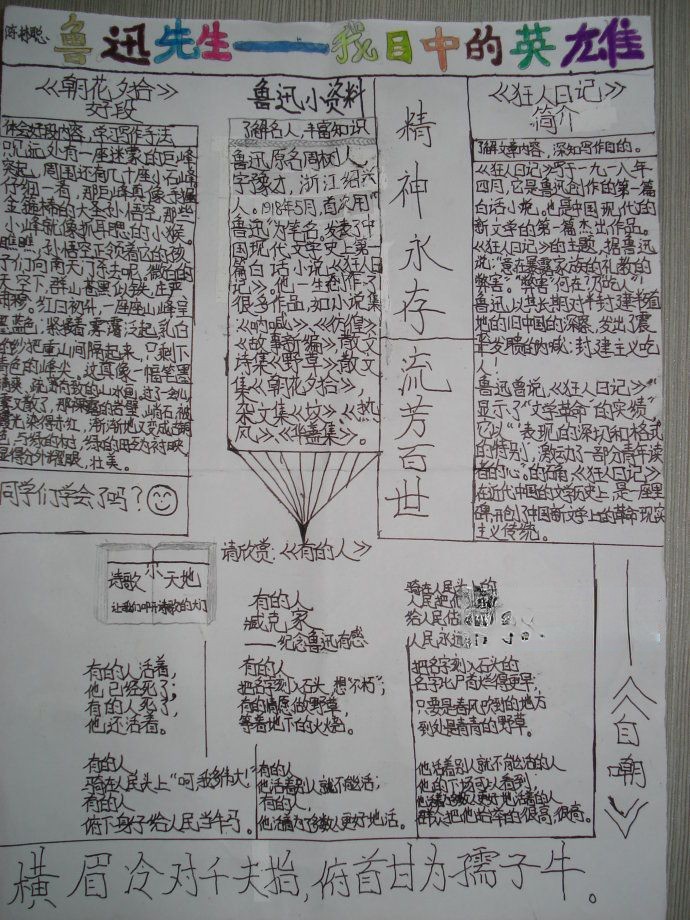 陈林聪:
鲁迅先生——我目中的英雄
《朝花夕拾》
好段
体会好段内容,学习写作手法
只见远处有一座迷蒙的巨峰
突起,周围还有几十座小石峰
仔细一看,那巨峰真像手握
金箍棒的大圣孙悟空,那些
小峰就像抓耳腮的小猴。
瞧瞧,孙悟空正领着它的孩
子们向南天门杀去呢。微白的
天空下,群山苍黑似铁,庄严
肃穆。红日初升,一座座山峰呈
墨蓝色,紧接着雾霭泛起,乳白
的纱把重山间隔起来,只剩下
青色的峰尖,真像一幅笔墨
清爽,疏密有致的山水画,过了一会儿
雾又散了,那裸露的岩壁,峭石,被
霞光染得赤红,渐渐地又变成古铜
色,与绿的树,绿的田互为衬映
显得分外耀眼,壮美。
同学们学会了吗?
鲁迅小资料
了解名人,丰富知识
鲁迅原名周树人,
字豫才,浙江绍兴
人。1918年5月,首次用“
鲁迅”为笔名,发表了中
国现代文学史上第一
篇白话小说《狂人日
记》。他一生创作了
很多作品,如小说集
《呐喊》、《彷徨》、
《故事新编》,散文
诗集《野草》散文
集《朝花夕拾》,
杂文集《坟》、《热
风》、《华盖集》。
精神永存
流芳百世
《狂人日记》
简介
了解文章内容,深知写作目的。
《狂人日记》写于一九一八年
四月,它是鲁迅创作的第一篇
白话小说。也是中国现代的
新文学的第一篇杰出作品。
《狂人日记》的主题,据鲁迅
说:“意在暴露家族的礼教的
弊害。”“弊害”何在?“乃吃人”
鲁迅以其长期对半封建半殖
地的旧中国的深察,发出了震
聋发聩的呐喊:封建主义吃
人!
鲁迅曾说,《狂人日记》“
显示了“文学革命”的实绩”
它以“表现的深切和格式
的特别,激动了一部分青年读
者的心”。的确《狂人日记》
在近代中国的文学历史上,是一座里
碑,开创了中国新文学上的革命现实
主义传统。
请欣赏:《有的人》
诗歌小天地
让我们叩开诗歌的大门
有的人
臧克家
——纪念鲁迅有感
有的人活着,
他已经死了;
有的人死了,
他还活着。
有的人
骑在人民头上“呵,我多伟大!”
有的人
俯下身子给人民当牛马。
有的人
把名字刻入石头,想“不朽”;
有的人情愿做野草,
等着地下的火烧。
有的人
他活着别人就不能活;
有的人,
他活着为了多数人更好地活。
骑在人民头上的
人民把他
给人民
人民永远
把名字刻入石头的
名字比尸首烂得更早;
只要是春风吹到的地方
到处是青青的野草。
他活着别人就不能活的人
他的下场可以看到
他活着为了多数人更好地活着的人
群众把他抬举的很高,很高。
——《自嘲》
横眉冷对千夫指,俯首甘为孺子牛。